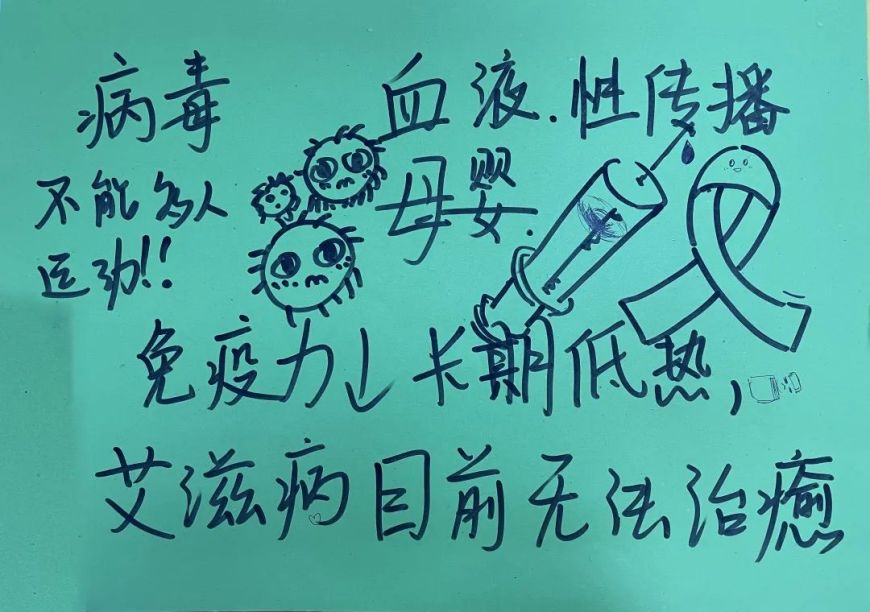 病毒
血液.性传播
母婴.
不能多人
运动!!
免疫力↓长期低热,
艾滋病目前无法治癒